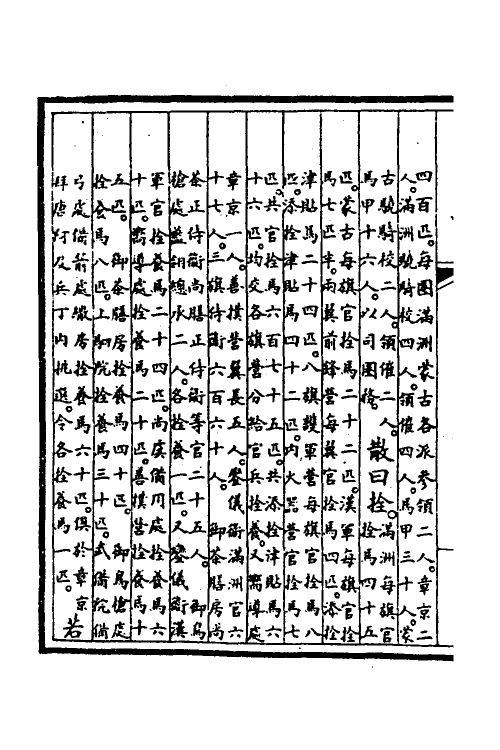 四百匹。每圈滿洲蒙古各派參領二人。章京二
人。滿洲驍騎校四人。領催四人。馬甲三十人。蒙
古驍騎校二人。領催二人。
馬甲十六人。以司圈務。
散曰拴。
滿洲每旗官
拴馬四十五
匹。蒙古每旗官拴馬二十二匹。漢軍每旗官拴
馬七匹半。兩翼前鋒營每翼官拴馬四匹。添拴
津貼馬二十四匹。八旗護軍營每旗官拴馬八
匹。添拴津貼馬四十二匹。內火器營官拴馬七
匹。共官拴馬六百七十五匹。共添拴津貼馬六
十六匹。均交各旗營分給官兵拴養。又嚮導處
章京一人。善撲營翼長五人。鑾儀衛滿洲官六
十七人。三旗侍衛六百六十人。 御茶膳房尚
茶正侍衛尚膳正侍衛等官二十五人。 御鳥
槍處藍翎總承二人。各拴養一匹。又鑾儀衛漢
軍官拴養馬二十四匹。尚虞備用處拴養馬六
十匹。嚮導處拴養馬二十匹。善撲營拴養馬十
五匹。 御茶膳房拴養馬四十匹。 御鳥槍處
拴養馬八匹。上駟院拴養馬三十匹。武備院備
弓處備箭處房拴養馬六十匹。俱於章京
拜唐阿及兵丁內挑選。令各拴養馬一匹。
若